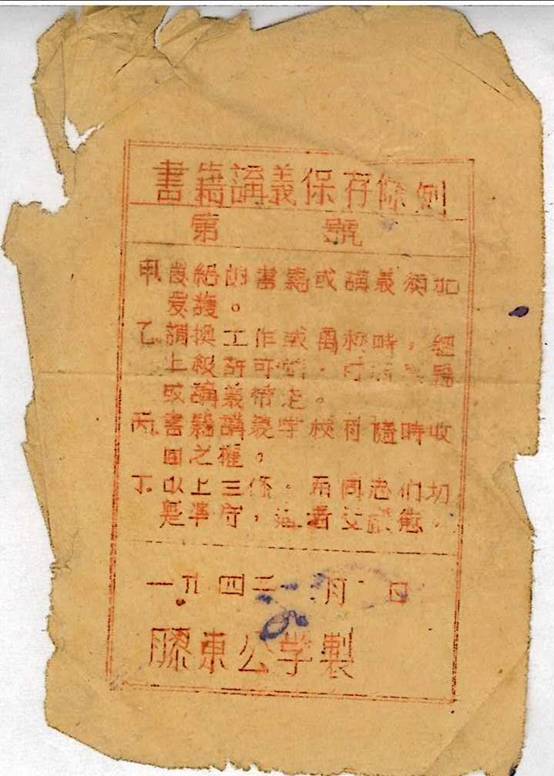 書籍講義保存條例
第 號
甲、發給的書籍或講義須加
愛護。
乙、調換工作或離校時，經
上級許可時，可將書籍
或講義帶走。
丙、書籍講義學校有隨時收
回之權。
丁、以上三條。希同志們切
是準守，違者受議處。
一九四二 月 日
膠東公學製